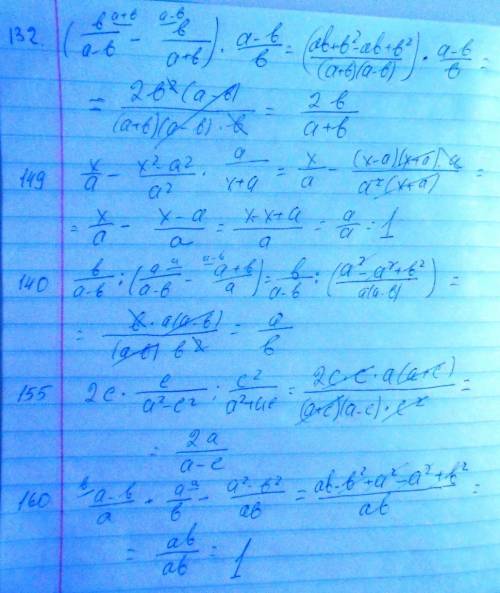 132. (b^{a+b}/(a-b) - ^{a-b}b/(a+b)) · (a-b)/b = ((ab+b²-ab+b²)/((a+b)(a-b))) · (a-b)/b =
= 2b²(a-b)/((a+b)(a-b)·b) = 2b/(a+b)
149 x/a - (x²-a²)/a² · a/(x+a) = x/a - (x-a)(x+a)a/(a²(x+a)) =
= x/a - (x-a)/a = (x-x+a)/a = a/a = 1
140 b/(a-b) : (a^{a}/(a-b) - ^{a-b}(a+b)/a) = b/(a-b) : ((a²-a²+b²)/(a(a-b))) =
= b·a(a-b)/((a-b)b²) = a/b
155 2c · c/(a²-c²) : c²/(a²+ac) = 2c·c·a(a+c)/((a+c)(a-c)·c²) =
= 2a/(a-c)
160 ^{b}(a-b)/a + a^{a}/b - (a²-b²)/ab = (ab-b²+a²-a²+b²)/ab =
= ab/ab = 1